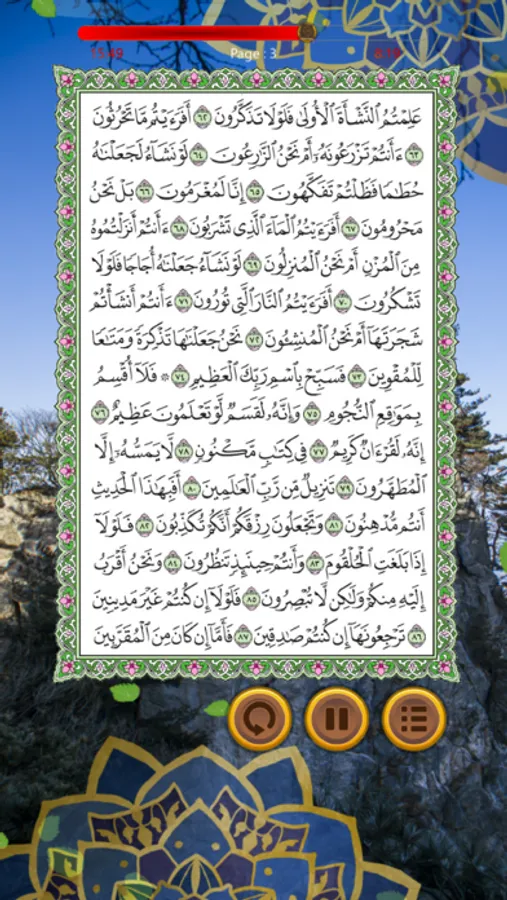 15:49
Page : 3
6:19
عَلِمْتُمُ ٱلنَّشْأَةَ ٱلْأُولَىٰ فَلَوْلَا تَذَكَّرُونَ ٦٢ أَفَرَءَيْتُم مَّا تَحْرُثُونَ
٦٣ ءَأَنتُمْ تَزْرَعُونَهُۥٓ أَمْ نَحْنُ ٱلزَّٰرِعُونَ ٦٤ لَوْ نَشَآءُ لَجَعَلْنَٰهُ
حُطَٰمًا فَظَلْتُمْ تَفَكَّهُونَ ٦٥ إِنَّا لَمُغْرَمُونَ ٦٦ بَلْ نَحْنُ
مَحْرُومُونَ ٦٧ أَفَرَءَيْتُمُ ٱلْمَآءَ ٱلَّذِى تَشْرَبُونَ ٦٨ ءَأَنتُمْ أَنزَلْتُمُوهُ
مِنَ ٱلْمُزْنِ أَمْ نَحْنُ ٱلْمُنزِلُونَ ٦٩ لَوْ نَشَآءُ جَعَلْنَٰهُ أُجَاجًا فَلَوْلَا
تَشْكُرُونَ ٧٠ أَفَرَءَيْتُمُ ٱلنَّارَ ٱلَّتِى تُورُونَ ٧١ ءَأَنتُمْ أَنشَأْتُمْ
شَجَرَتَهَآ أَمْ نَحْنُ ٱلْمُنشِـُٔونَ ٧٢ نَحْنُ جَعَلْنَٰهَا تَذْكِرَةً وَمَتَٰعًا
لِّلْمُقْوِينَ ٧٣ فَسَبِّحْ بِٱسْمِ رَبِّكَ ٱلْعَظِيمِ ٧٤ ۞ فَلَآ أُقْسِمُ
بِمَوَٰقِعِ ٱلنُّجُومِ ٧٥ وَإِنَّهُۥ لَقَسَمٌ لَّوْ تَعْلَمُونَ عَظِيمٌ ٧٦
إِنَّهُۥ لَقُرْءَانٌ كَرِيمٌ ٧٧ فِى كِتَٰبٍ مَّكْنُونٍ ٧٨ لَّا يَمَسُّهُۥٓ إِلَّا
ٱلْمُطَهَّرُونَ ٧٩ تَنزِيلٌ مِّن رَّبِّ ٱلْعَٰلَمِينَ ٨٠ أَفَبِهَٰذَا ٱلْحَدِيثِ
أَنتُم مُّدْهِنُونَ ٨١ وَتَجْعَلُونَ رِزْقَكُمْ أَنَّكُمْ تُكَذِّبُونَ ٨٢ فَلَوْلَآ
إِذَا بَلَغَتِ ٱلْحُلْقُومَ ٨٣ وَأَنتُمْ حِينَئِذٍ تَنظُرُونَ ٨٤ وَنَحْنُ أَقْرَبُ
إِلَيْهِ مِنكُمْ وَلَٰكِن لَّا تُبْصِرُونَ ٨٥ فَلَوْلَآ إِن كُنتُمْ غَيْرَ مَدِينِينَ
٨٦ تَرْجِعُونَهَآ إِن كُنتُمْ صَٰدِقِينَ ٨٧ فَأَمَّآ إِن كَانَ مِنَ ٱلْمُقَرَّبِينَ